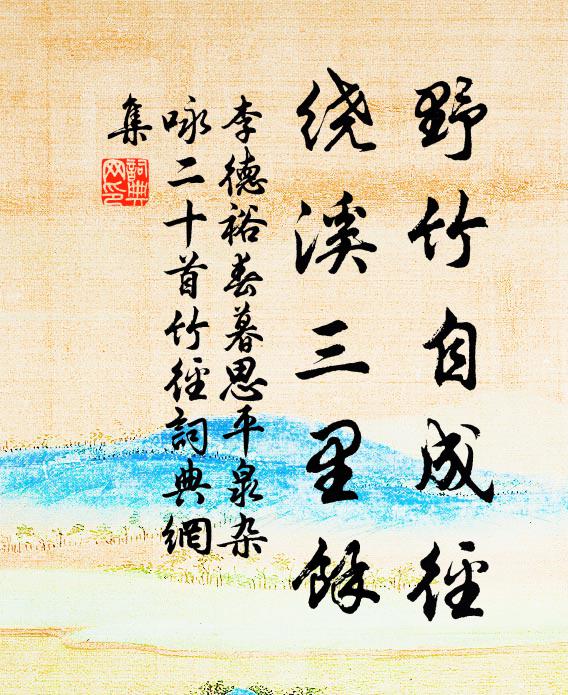 野竹自成徑
绕溪三里餘
李德裕春暮思平泉杂
咏二十首竹徑詞典網
集
詞典
网印